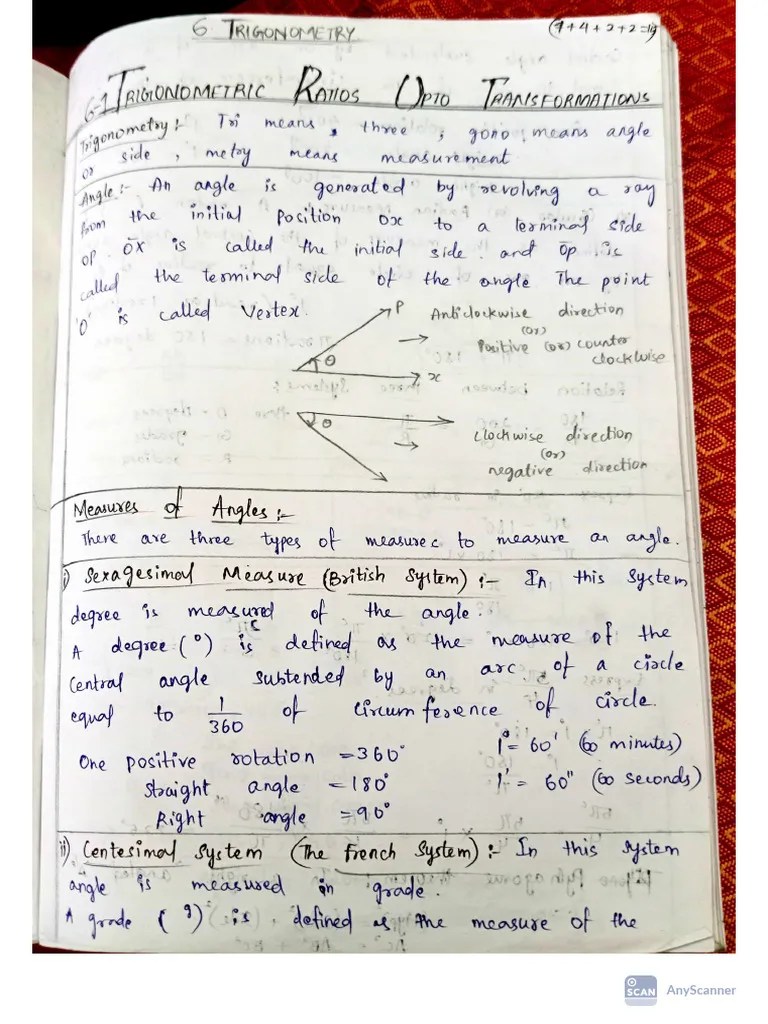 6 TRIGONOMETRY (7+4+2+2=15)
6.1 TRIGONOMETRIC RATIOS UPTO TRANSFORMATIONS
Trigonometry :- Tri means, three, gono means angle
or side, metry means measurement
Angle :- An angle is generated by revolving a ray
from the initial position ox to a terminal side
op. ox is called the initial side. and op is
called the terminal side of the angle The point
'O' is called Vertex.
P
θ
x
→ Anticlockwise direction
(or)
Positive (or) counter
clockwise
θ
→ clockwise direction
(or)
negative direction
Measures of Angles :-
There are three types of measures to measure an angle.
i) Sexagesimal Measure (British System) :- In this system
degree is measured of the angle.
A degree (°) is defined as the measure of the
Central angle subtended by an arc of a circle
equal to 1/360 of circumference of circle.
One positive rotation = 360° 1° = 60' (60 minutes)
Straight angle = 180° 1' = 60" (60 seconds)
Right angle = 90°
ii) Centesimal System (The French System) :- In this system
angle is measured in grade.
A grade (g) is defined as the measure of the
SCAN AnyScanner